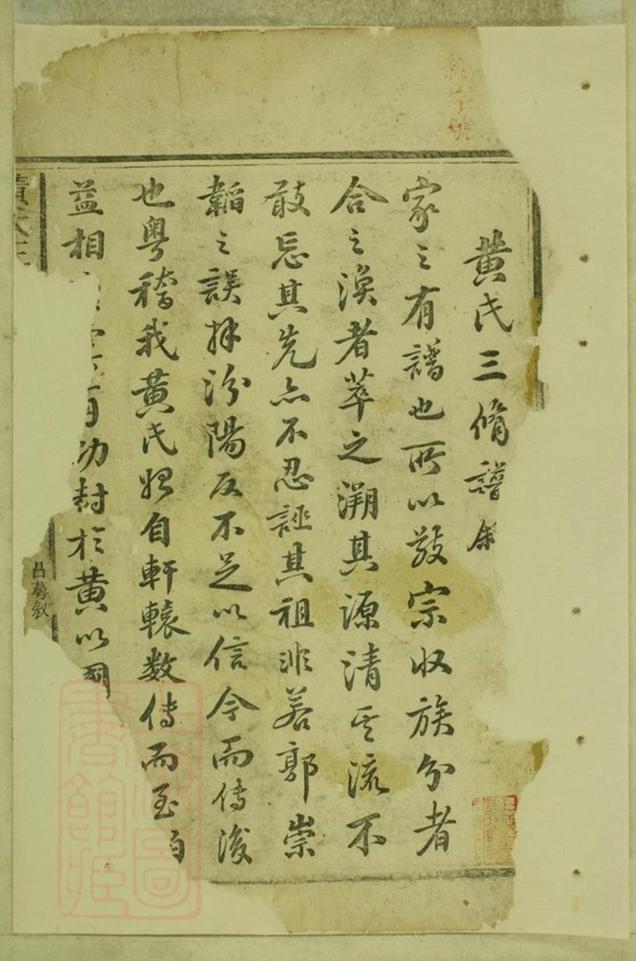 黄氏三脩譜叙
家之有譜也所以敦宗收族分者
合之渙者萃之溯其源清其流不
敢忘其先亦不忍誣其祖非若郭崇
韜之誤拜汾陽反不足以信今而傳後
也粤稽我黄氏始自軒轅数傳而至
益相 功封於黄以國
昌 叙